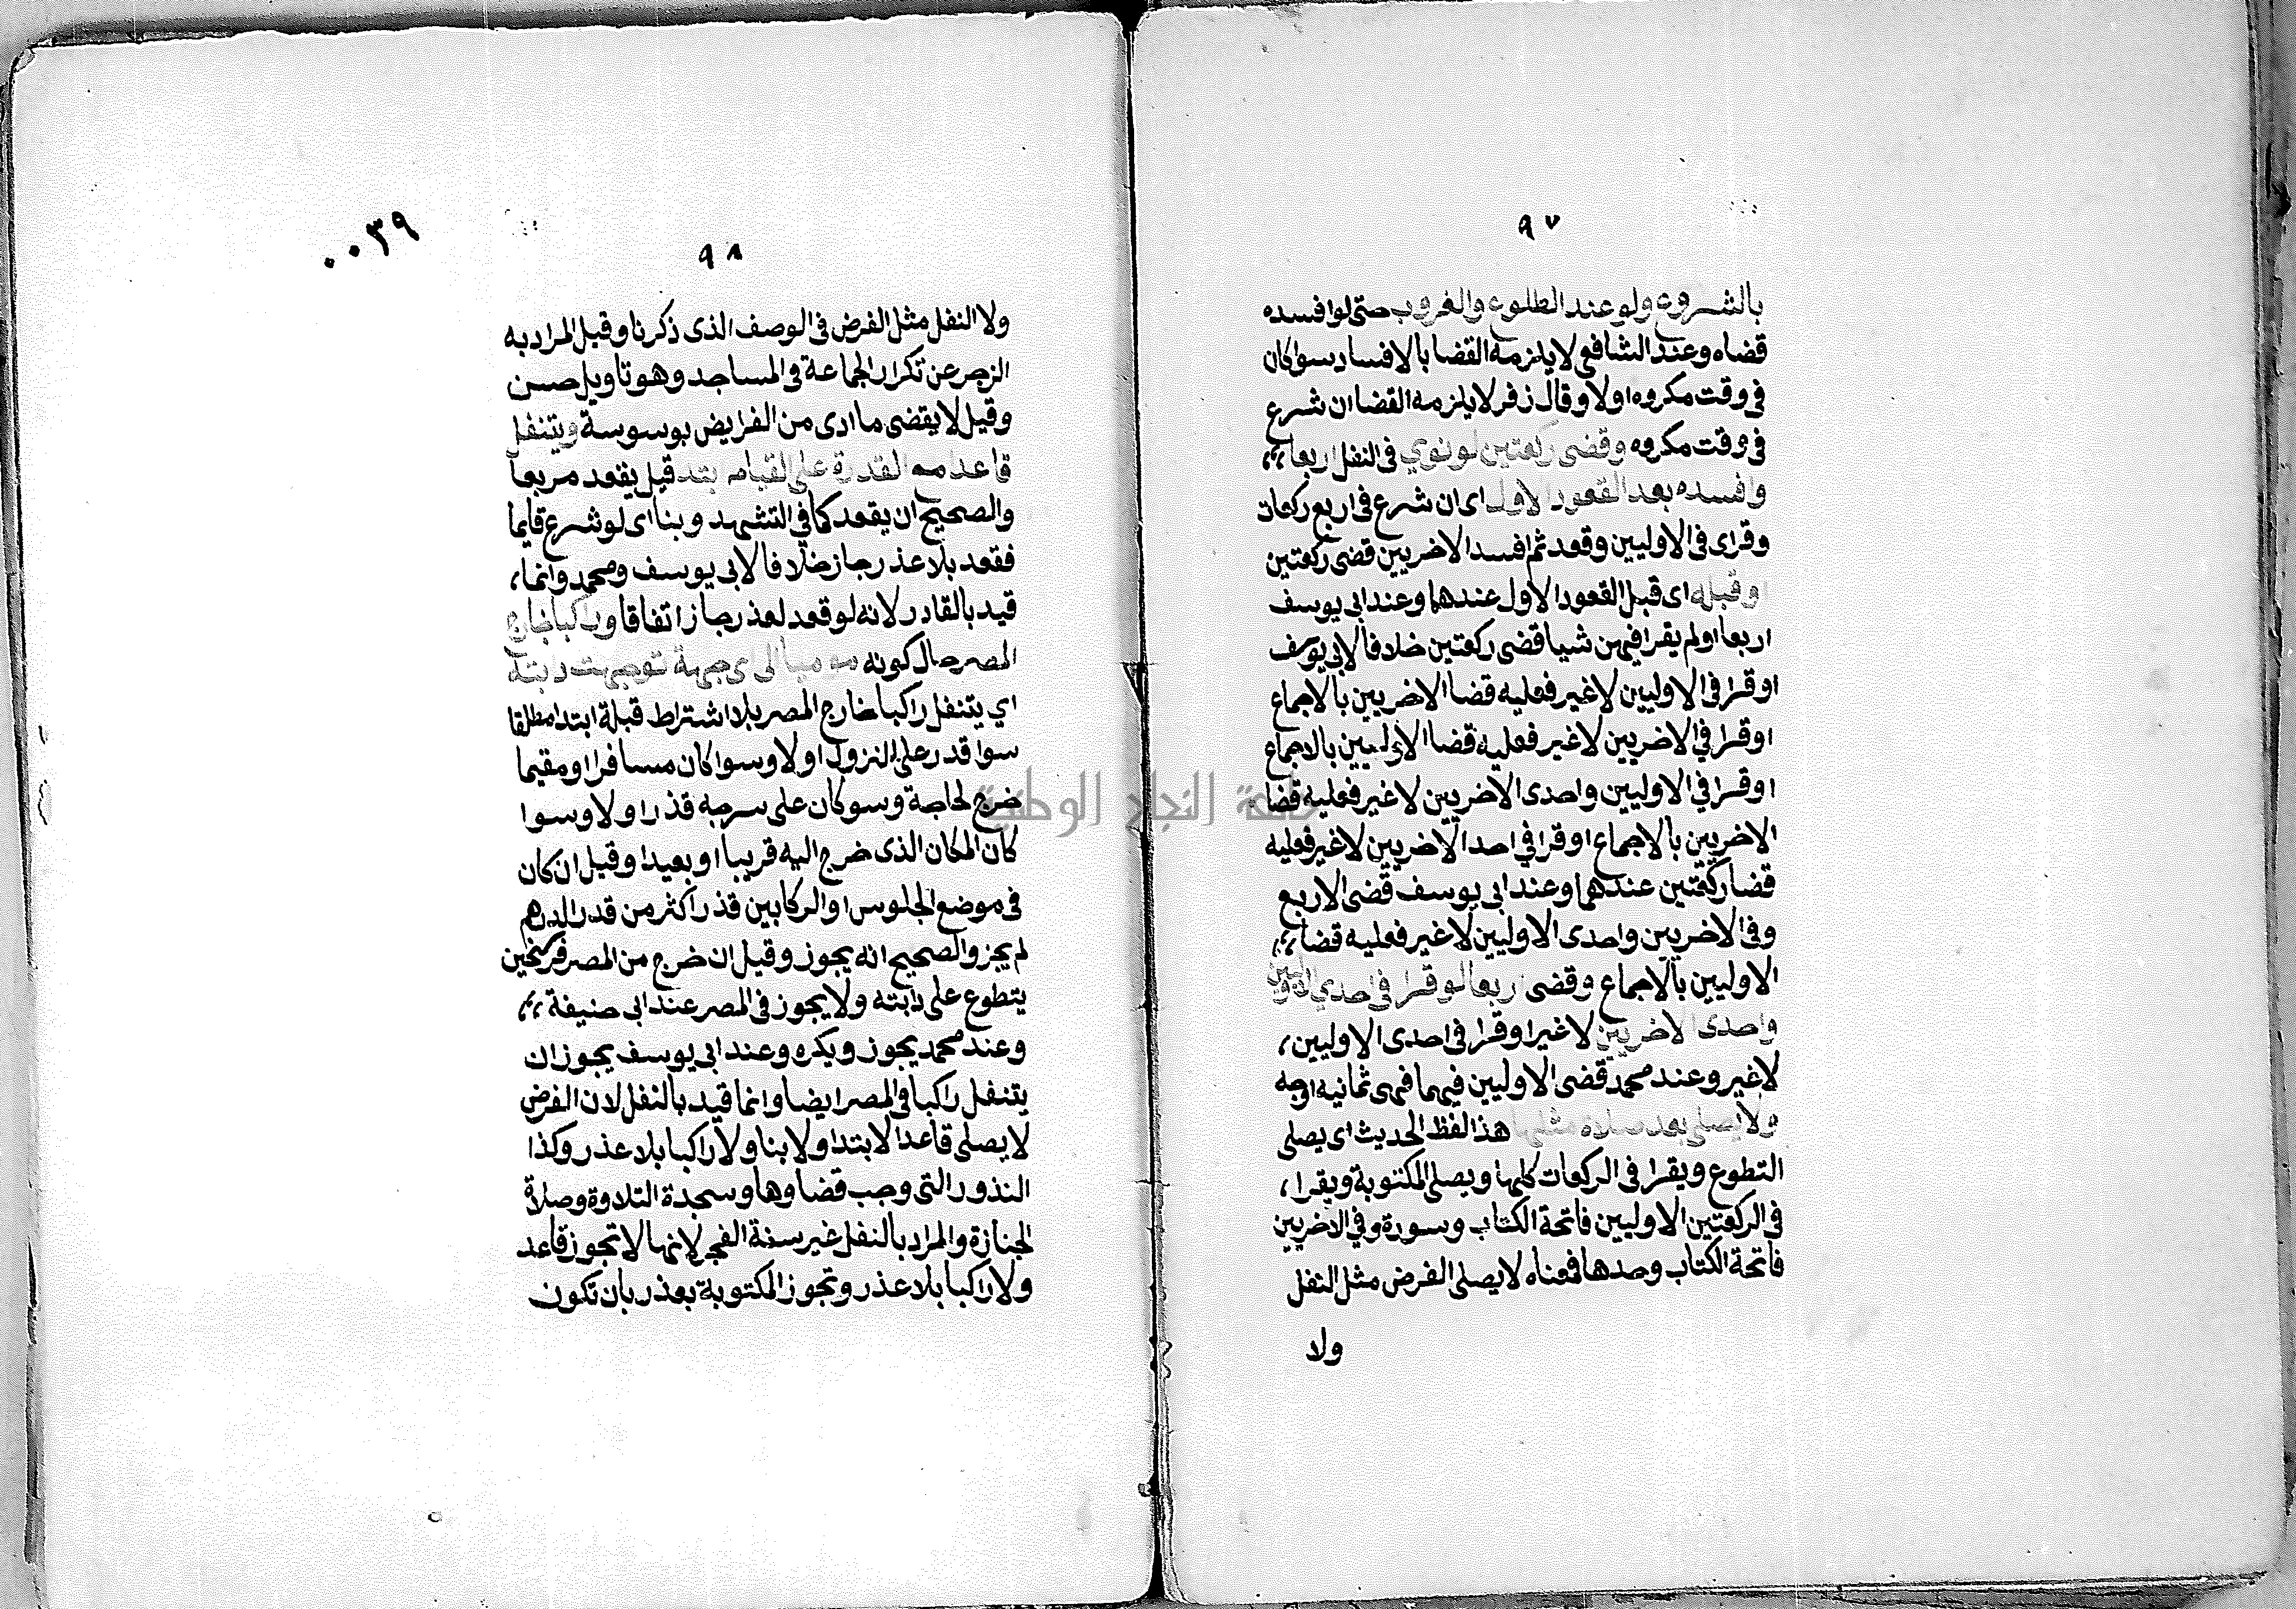 ٩٧
بالشروع ولو عند الطلوع والغروب حتى لو افسده
قضاه وعند الشافعي لا يلزمه القضا بالافساد سوا كان
في وقت مكروه او لا وقال زفر لا يلزمه القضا ان شرع
في وقت مكروه وقضى ركعتين لو نوي في النفل اربعا
وافسده بعد القعود الاول اى ان شرع في اربع ركعات
وقراى في الاوليين وقعد ثم افسد الاخريين قضى ركعتين
او قبله اى قبل القعود الاول عندهما وعند ابى يوسف
اربعا او لم يقرا فيهن شيا قضى ركعتين خلافا لابى يوسف
او قرا في الاوليين لا غير فعليه قضا الاخريين بالاجماع
او قرا في الاخريين لا غير فعليه قضا الاوليين بالاجماع
او قرا في الاوليين واحدى الاخريين لا غير فعليه قضا
الاخريين بالاجماع او قرا في احد الاخريين لا غير فعليه
قضا ركعتين عندهما وعند ابى يوسف قضى الاربع
وفى الاخريين واحدى الاوليين لا غير فعليه قضا
الاوليين بالاجماع وقضى اربعا لو قرا في احدي الاوليين
واحدى الاخريين لا غير او قرا في احدى الاوليين،
لا غير وعند محمد قضى الاوليين فيهما فهى ثمانيه اوجه
ولا يصلى بعد صلاه مثلها هذا لفظ الحديث اى يصلى
التطوع ويقرا فى الركعات كلها ويصلى المكتوبة ويقرا،
فى الركعتين الاوليين فاتحة الكتاب وسورة وفي الاخريين
فاتحة الكتاب وحدها فمعناه لا يصلى الفرض مثل النفل
ولا
٠٠٣٩
٩٨
ولا النفل مثل الفرض في الوصف الذى ذكرنا وقيل المراد به
الزجر عن تكرار الجماعة في المساجد وهو تاويل حسن
وقيل لا يقضى ما ادى من الفرايض بوسوسة ويتنفل
قاعدا مع القدرة على القيام بتدا قيل يقعد مربعا
والصحيح ان يقعد كما في التشهد وبنا اى لو شرع قايما
فقعد بلا عذر جاز خلافا لابى يوسف ومحمد وانما،
قيد بالقادر لانه لو قعد لعذر جاز اتفاقا وراكبا خارج
المصر حال كونه موميا الى اى جهة توجهت دابته
اي يتنفل راكبا خارج المصر بلا اشتراط قبلة ابتدا مطلقا
سوا قدر على النزول او لا وسوا كان مسافرا او مقيما
خرج لحاجة وسو كان على سرجه قذرا ولا وسوا
كان المكان الذى خرج اليه قريبا او بعيدا وقيل ان كان
فى موضع الجلوس او الركابين قذر اكثر من قدر الدرهم
لم يجز والصحيح انه يجوز وقيل ان خرج من المصر فرسخين
يتطوع على دابته ولا يجوز في المصر عند ابى حنيفة
وعند محمد يجوز ويكره وعند ابى يوسف يجوز ان
يتنفل راكبا في المصر ايضا وانما قيد بالنفل لان الفرض
لا يصلى قاعدا لا ابتدا ولا بنا ولا راكبا بلا عذر وكذا
النذور التى وجب قضاوها وسجدة التلاوة وصلاة
الجنازة والمراد بالنفل غير سنة الفجر لانها لا تجوز قاعد
ولا راكبا بلا عذر وتجوز المكتوبة بعذر بان تكون
جامعة النجاح الوطنية